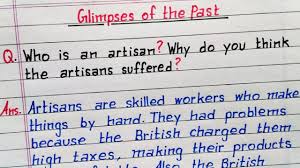 Glimpses of the Past
Q. Who is an artisan? Why do you think
the artisans suffered?
Ans. Artisans are skilled workers who make
things by hand. They had problems
because the British charged them
high taxes, making their products
Also the British